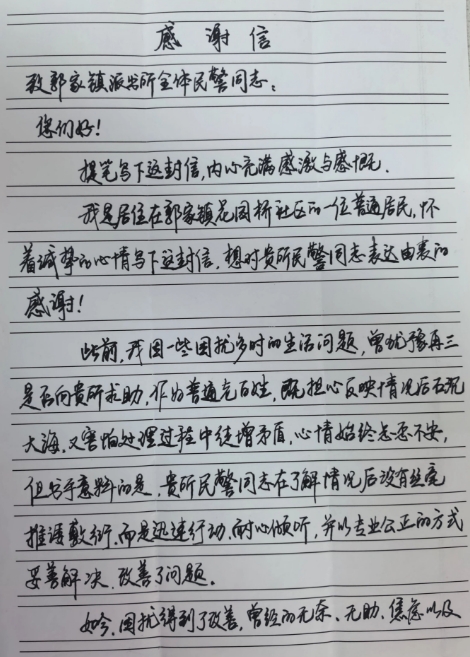 感谢信
致郭家镇派出所全体民警同志:
您们好!
提笔写下这封信,内心充满感激与感慨.
我是居住在郭家镇花园桥社区的一位普通居民,怀
着诚挚的心情写下这封信,想对贵所民警同志表达由衷的
感谢!
此前,我因一些困扰多时的生活问题,曾犹豫再三
是否向贵所求助.作为普通老百姓,既担心反映情况后石沉
大海,又害怕处理过程中徒增矛盾,心情始终忐忑不安,
但出乎意料的是,贵所民警同志在了解情况后没有丝毫
推诿敷衍.而是迅速行动.耐心倾听,并以专业公正的方式
妥善解决.改善了问题。
如今,困扰得到了改善,曾经的无奈、无助、焦虑以及